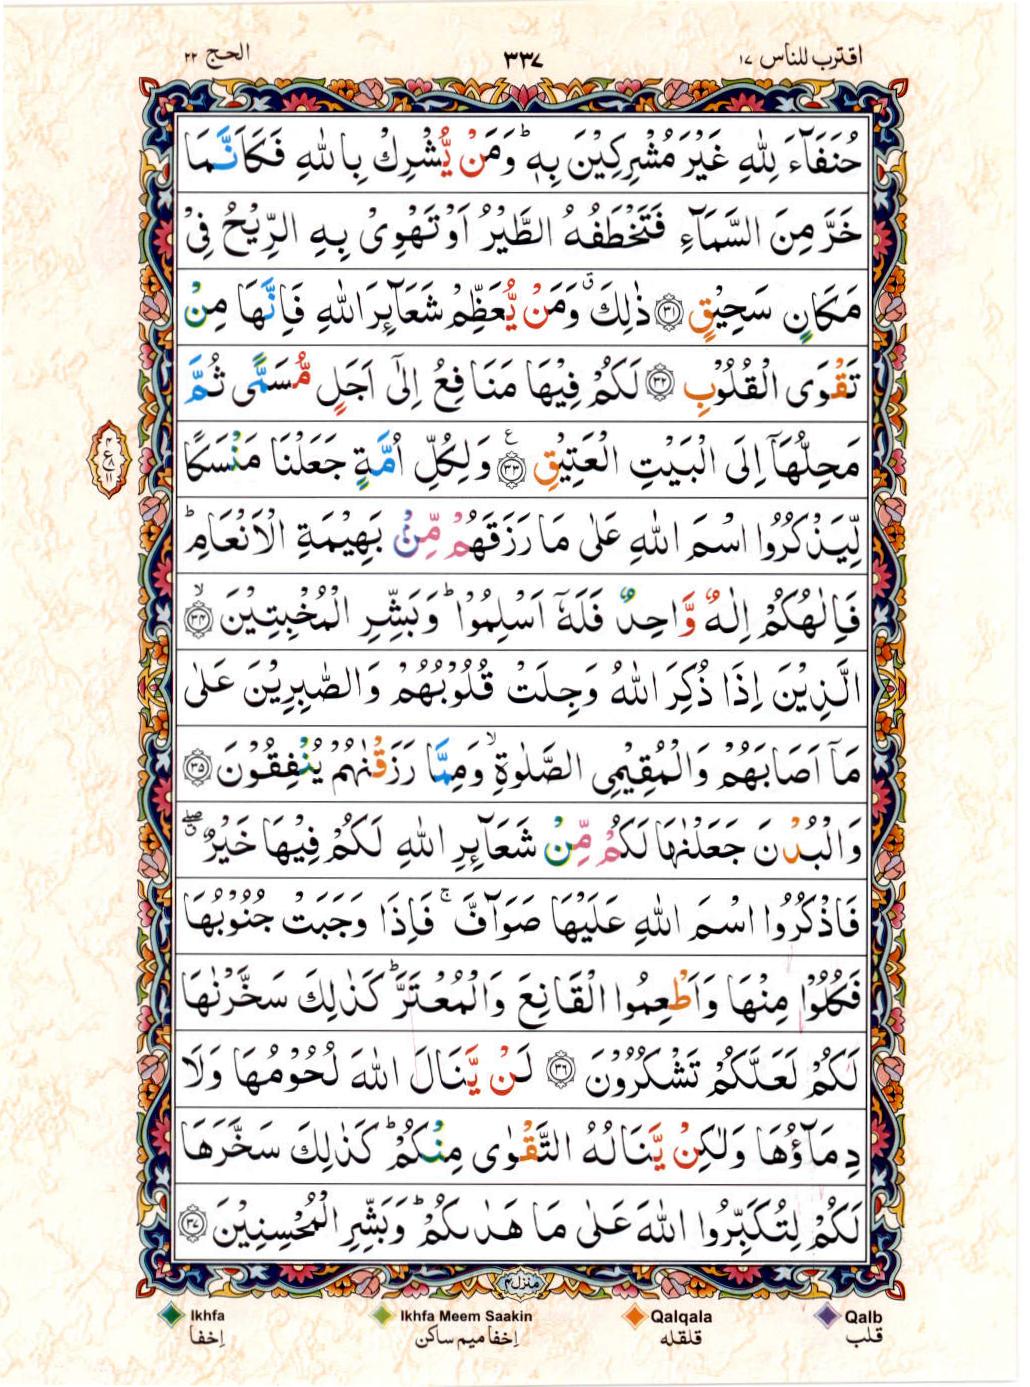 اقترب للناس ١٧ ٣٣٧ الحج ٢٢
حُنَفَآءَ لِلّٰهِ غَيْرَ مُشْرِكِيْنَ بِهٖ ؕ وَمَنْ يُّشْرِكْ بِاللّٰهِ فَكَاَنَّمَا
خَرَّ مِنَ السَّمَآءِ فَتَخْطَفُهُ الطَّيْرُ اَوْ تَهْوِىْ بِهِ الرِّيْحُ فِىْ
مَكَانٍ سَحِيْقٍ ﴿٣١﴾ ذٰلِكَ ۗ وَمَنْ يُّعَظِّمْ شَعَآئِرَ اللّٰهِ فَاِنَّهَا مِنْ
تَقْوَى الْقُلُوْبِ ﴿٣٢﴾ لَكُمْ فِيْهَا مَنَافِعُ اِلٰٓى اَجَلٍ مُّسَمًّى ثُمَّ
مَحِلُّهَاۤ اِلَى الْبَيْتِ الْعَتِيْقِ ﴿٣٣﴾ ع وَلِكُلِّ اُمَّةٍ جَعَلْنَا مَنْسَكًا
لِّيَذْكُرُوا اسْمَ اللّٰهِ عَلٰى مَا رَزَقَهُمْ مِّنْۢ بَهِيْمَةِ الْاَنْعَامِ ؕ
فَاِلٰهُكُمْ اِلٰهٌ وَّاحِدٌ فَلَهٗۤ اَسْلِمُوْا ؕ وَبَشِّرِ الْمُخْبِتِيْنَ ۙ ﴿٣٤﴾
الَّذِيْنَ اِذَا ذُكِرَ اللّٰهُ وَجِلَتْ قُلُوْبُهُمْ وَالصّٰبِرِيْنَ عَلٰى
مَاۤ اَصَابَهُمْ وَالْمُقِيْمِى الصَّلٰوةِ ۙ وَمِمَّا رَزَقْنٰهُمْ يُنْفِقُوْنَ ﴿٣٥﴾
وَالْبُدْنَ جَعَلْنٰهَا لَكُمْ مِّنْ شَعَآئِرِ اللّٰهِ لَكُمْ فِيْهَا خَيْرٌ ۖ ق
فَاذْكُرُوا اسْمَ اللّٰهِ عَلَيْهَا صَوَآفَّ ۚ فَاِذَا وَجَبَتْ جُنُوْبُهَا
فَكُلُوْا مِنْهَا وَاَطْعِمُوا الْقَانِعَ وَالْمُعْتَرَّ ؕ كَذٰلِكَ سَخَّرْنٰهَا
لَكُمْ لَعَلَّكُمْ تَشْكُرُوْنَ ﴿٣٦﴾ لَنْ يَّنَالَ اللّٰهَ لُحُوْمُهَا وَلَا
دِمَآؤُهَا وَلٰكِنْ يَّنَالُهُ التَّقْوٰى مِنْكُمْ ؕ كَذٰلِكَ سَخَّرَهَا
لَكُمْ لِتُكَبِّرُوا اللّٰهَ عَلٰى مَا هَدٰىكُمْ ؕ وَبَشِّرِ الْمُحْسِنِيْنَ ﴿٣٧﴾
منزل ٤
Ikhfa Ikhfa Meem Saakin Qalqala Qalb
إخفا إخفا ميم ساكن قلقله قلب